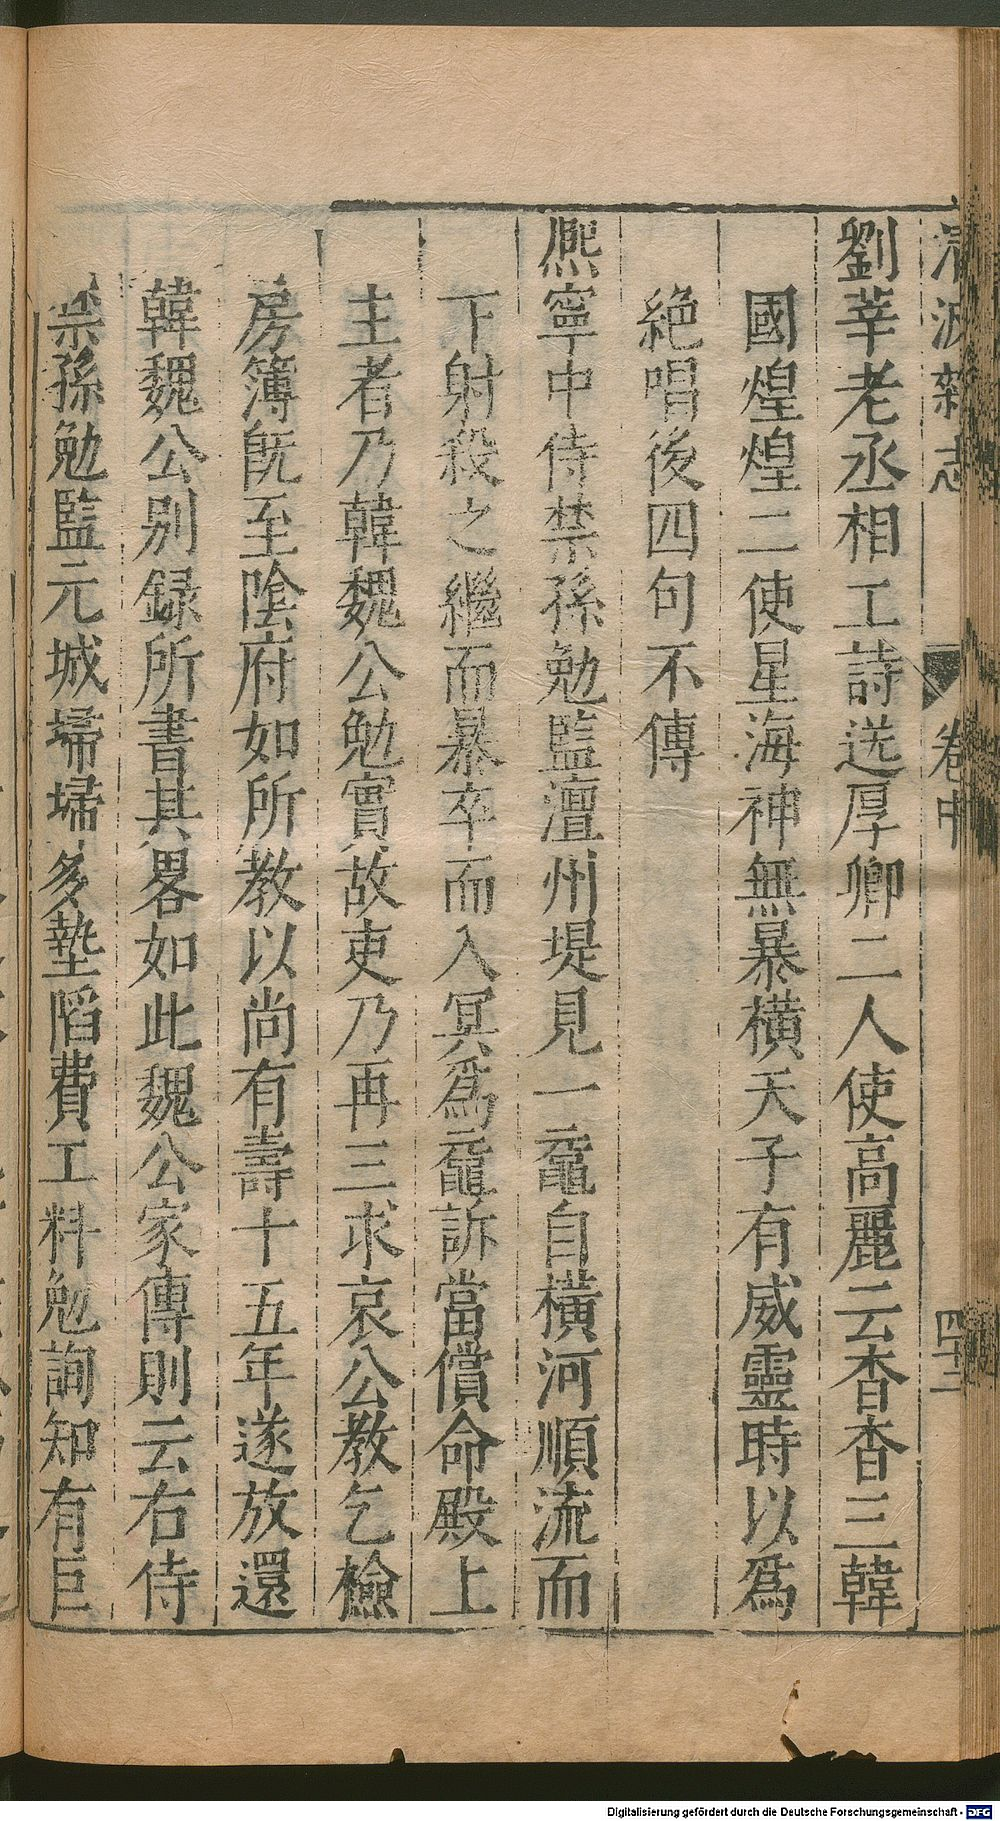 清波雜志 卷中 四十二
劉莘老丞相工詩送厚卿二人使高麗云杳杳三韓
國煌煌二使星海神無暴橫天子有威靈時以爲
絶唱後四句不傳
熈寧中侍禁孫勉監澶州堤見一黿自横河順流而
下射殺之繼而暴卒而入冥爲黿訴當償命殿上
主者乃韓魏公勉實故吏乃再三求哀公教乞檢
房簿旣至陰府如所教以尚有壽十五年遂放還
韓魏公别録所書其畧如此魏公家傳則云右侍
禁孫勉監元城埽埽多墊陷費工料勉詢知有巨
Digitalisierung gefördert durch die Deutsche Forschungsgemeinschaft - DFG